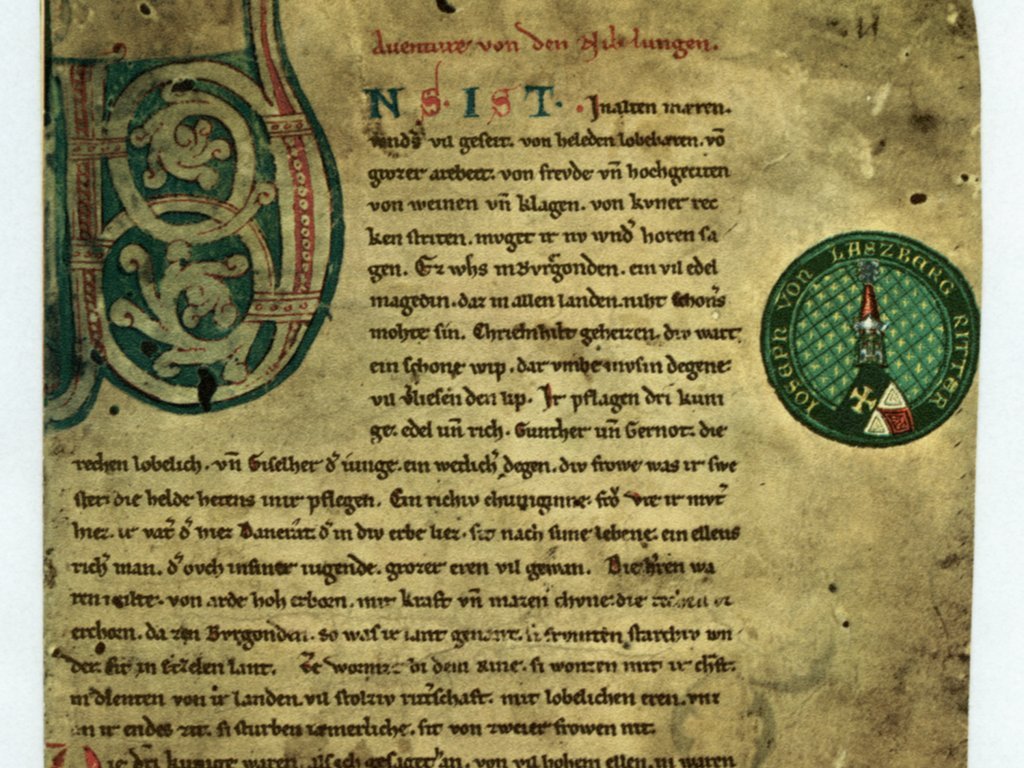 Auenture von den Nibelungen.
NS IST. Inalten mæren.
wnds vil geseit. von heleden lobebæren. vō
grozer arebeit. von frevde vn̄ hochgeciten
von weinen vn̄ klagen. von kvner rec
ken striten. mvget ir nv wnd horen sa
gen. Ez whs inBvrgonden. ein vil edel
magedin. daz in allen landen. niht schoners
mohte sin. Chriemhilt geheizen. div wart
ein schone wip. dar vmbe mvsin degene
vil vliesen den lip. Ir pflagen dri kuni
ge. edel un̄ rich. Gunther un̄ Gernot. die
rechen lobelich. vn̄ Giselher d iunge. ein wetlich degen. div frowe was ir swe
ster. die helde hetens inir pflegen. Ein richiv chuniginne. fro vte ir mvt
hiez. ir vat d hiez Dancrat. d in div erbe liez. sit nach sime lebene. ein ellens
rich man. d ovch insiner iugende. grozer eren vil gewan. Die h̄ren wa
ren milte. von arde hoh erborn. mit kraft vn̄ mazen chvne. die rechen vz
erchorn. da zen Bvrgonden. so was ir lant genant. si frvmten starchiv wn
der. sit in Etzelen lant. Ze wormz bi dem Rine. si wonten mit ir chft.
in dienten von ir landen. vil stolziv ritscháft. mit lobelichen eren. vnz
an ir endes zit. si sturben iæmerliche. sit von zweier frowen nit.
Die dri kunige waren. als ich gesaget han. von vil hohem ellen. in waren
IOSEPH VON LASZBERG RITTER